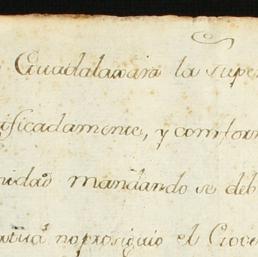 Guadalaxara la supe
ificadamente, y comfor
uedad mandando se deb
no prosiguio el Gove